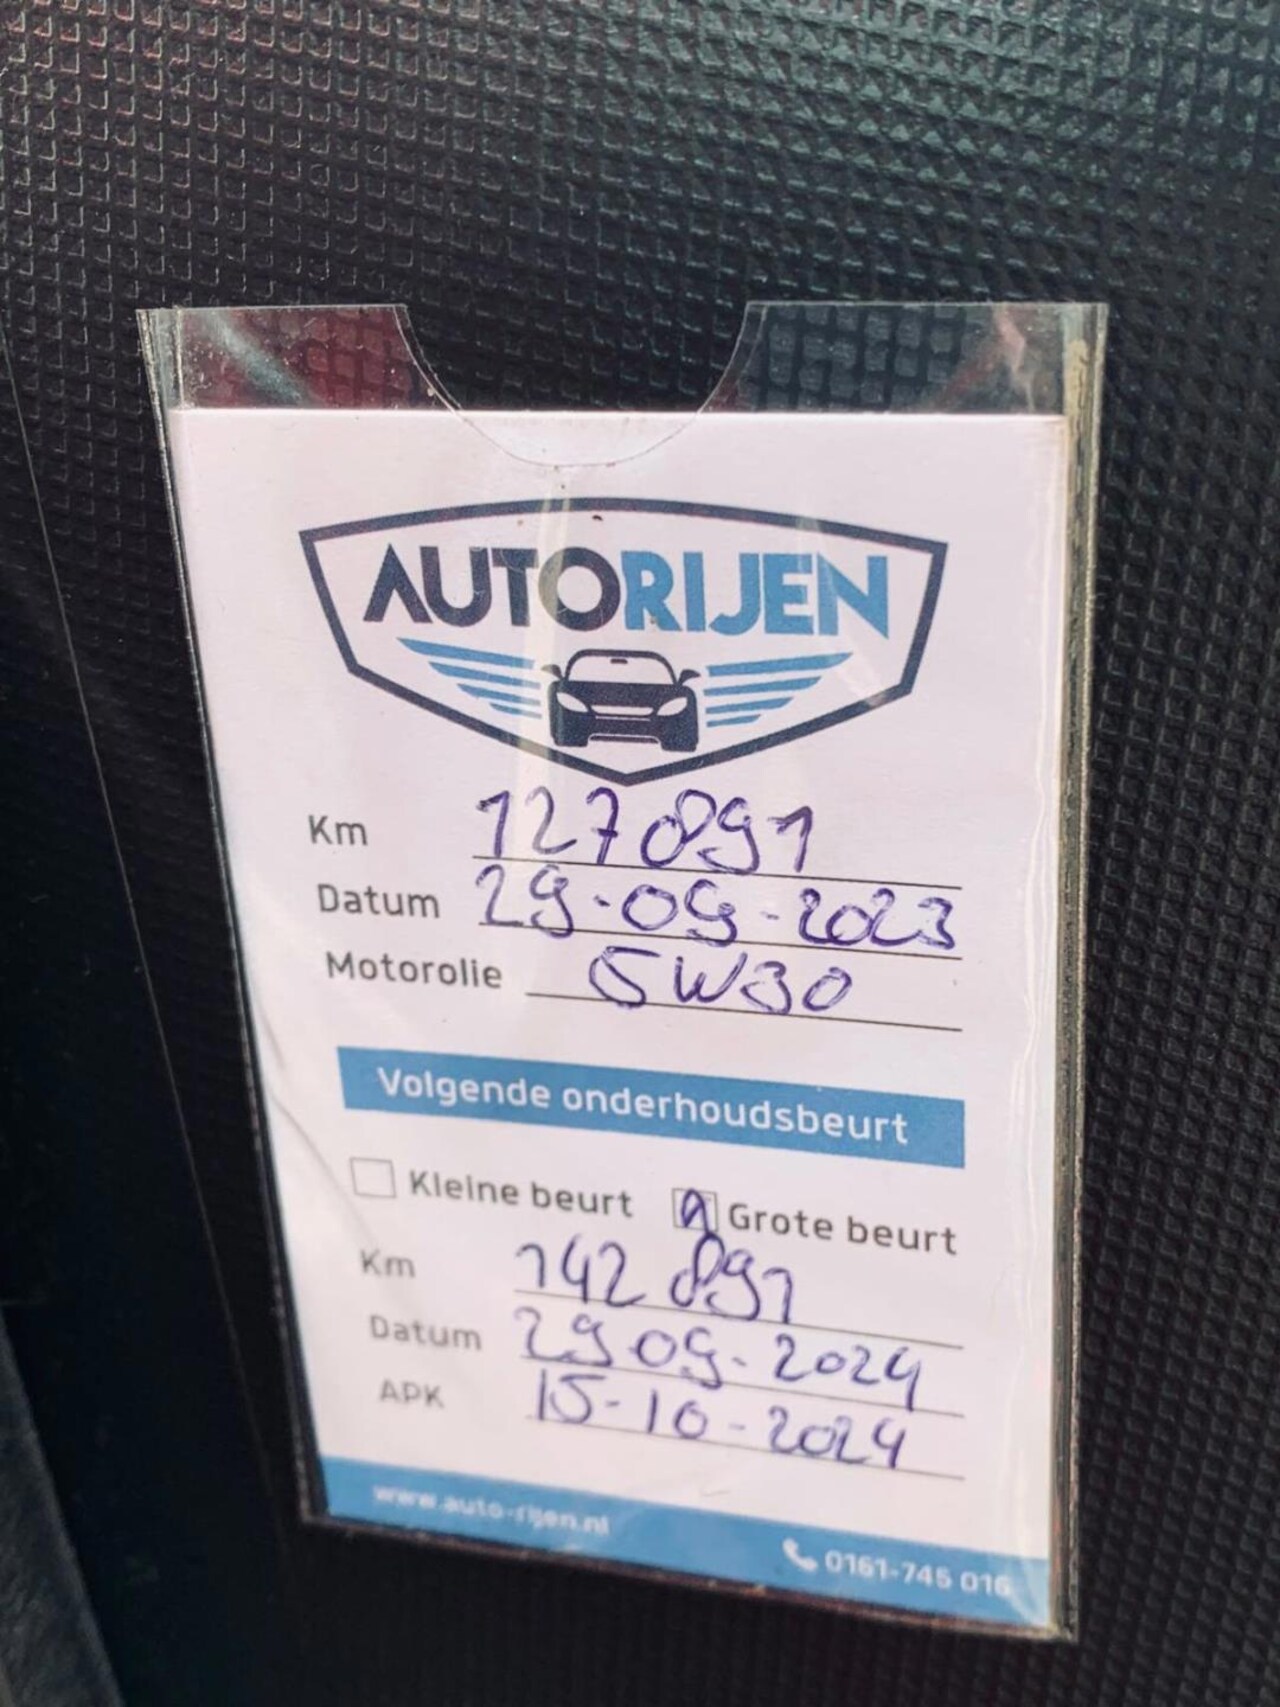 AUTORIJEN
Km 127891
Datum 29-09-2023
Motorolie 5W30
Volgende onderhoudsbeurt
Kleine beurt Grote beurt
Km 142891
Datum 29 09-2024
APK 15-10-2024
www.auto-rijen.nl 0161-745 016